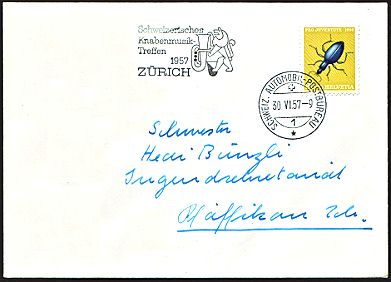 Schweizerisches
Knabenmusik-
Treffen
1957
ZÜRICH
SCHWEIZ. AUTOMOBIL-POSTBUREAU
30 VI.57-9
1
PRO JUVENTUTE 1956
HELVETIA
Schwester
Hedi Bünzli
Jugendsekretariat
Pfäffikon Zch.